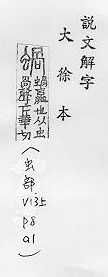 說文解字
大徐本
蝸蠃也从虫
咼聲古華切
(虫部
V135
p8
a1)